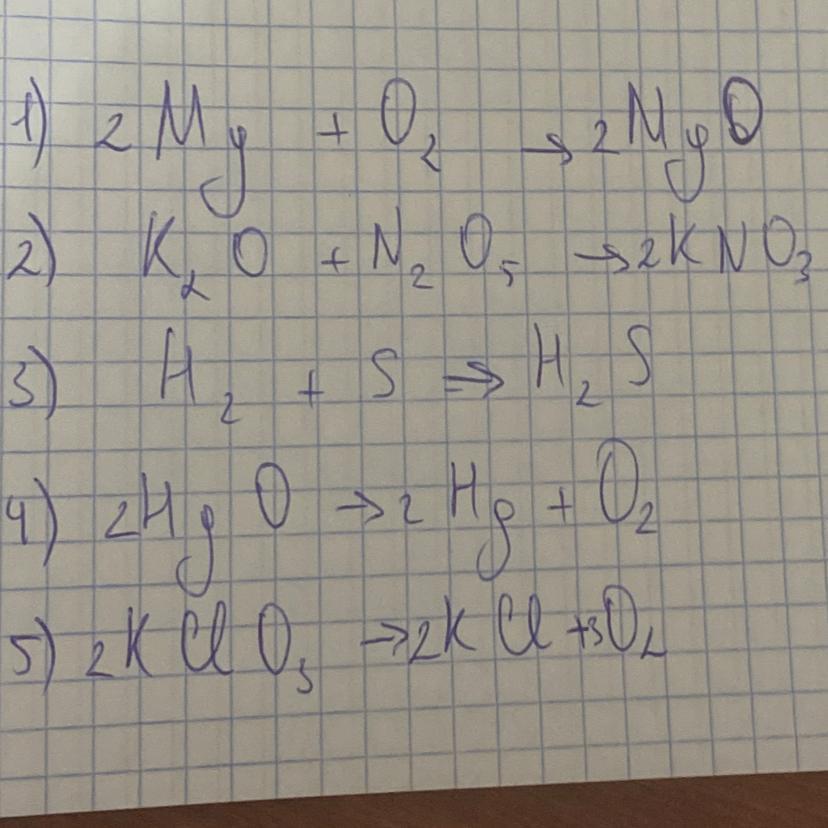 1) 2Mg + O₂ → 2MgO
2) K₂O + N₂O₅ → 2KNO₃
3) H₂ + S ⇒ H₂S
4) 2HgO → 2Hg + O₂
5) 2KClO₃ → 2KCl + 3O₂